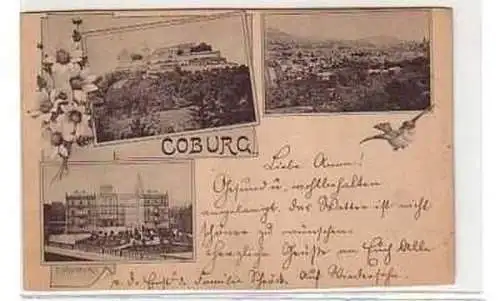 COBURG
Liebe Anna!
Gesund u. wohlbehalten
angelangt. Das Wetter ist nicht
schöner zu wünschen
herzliche Grüße an Euch Alle
v. d. Ernst u. Familie Auf Wiedersehn.